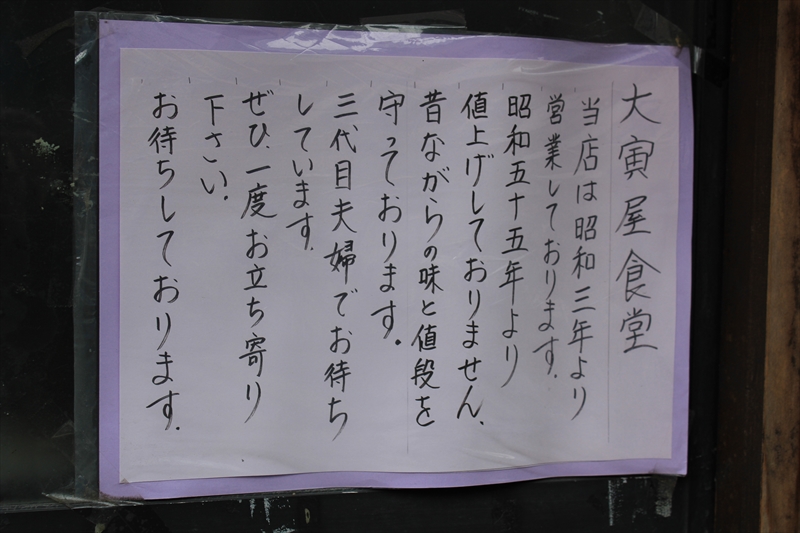 大寅屋食堂
当店は昭和三年より
営業しております.
昭和五十五年より
値上げしておりません、
昔ながらの味と値段を
守っております.
三代目夫婦でお待ち
しています.
ぜひ、一度お立ち寄り
下さい.
お待ちしております.